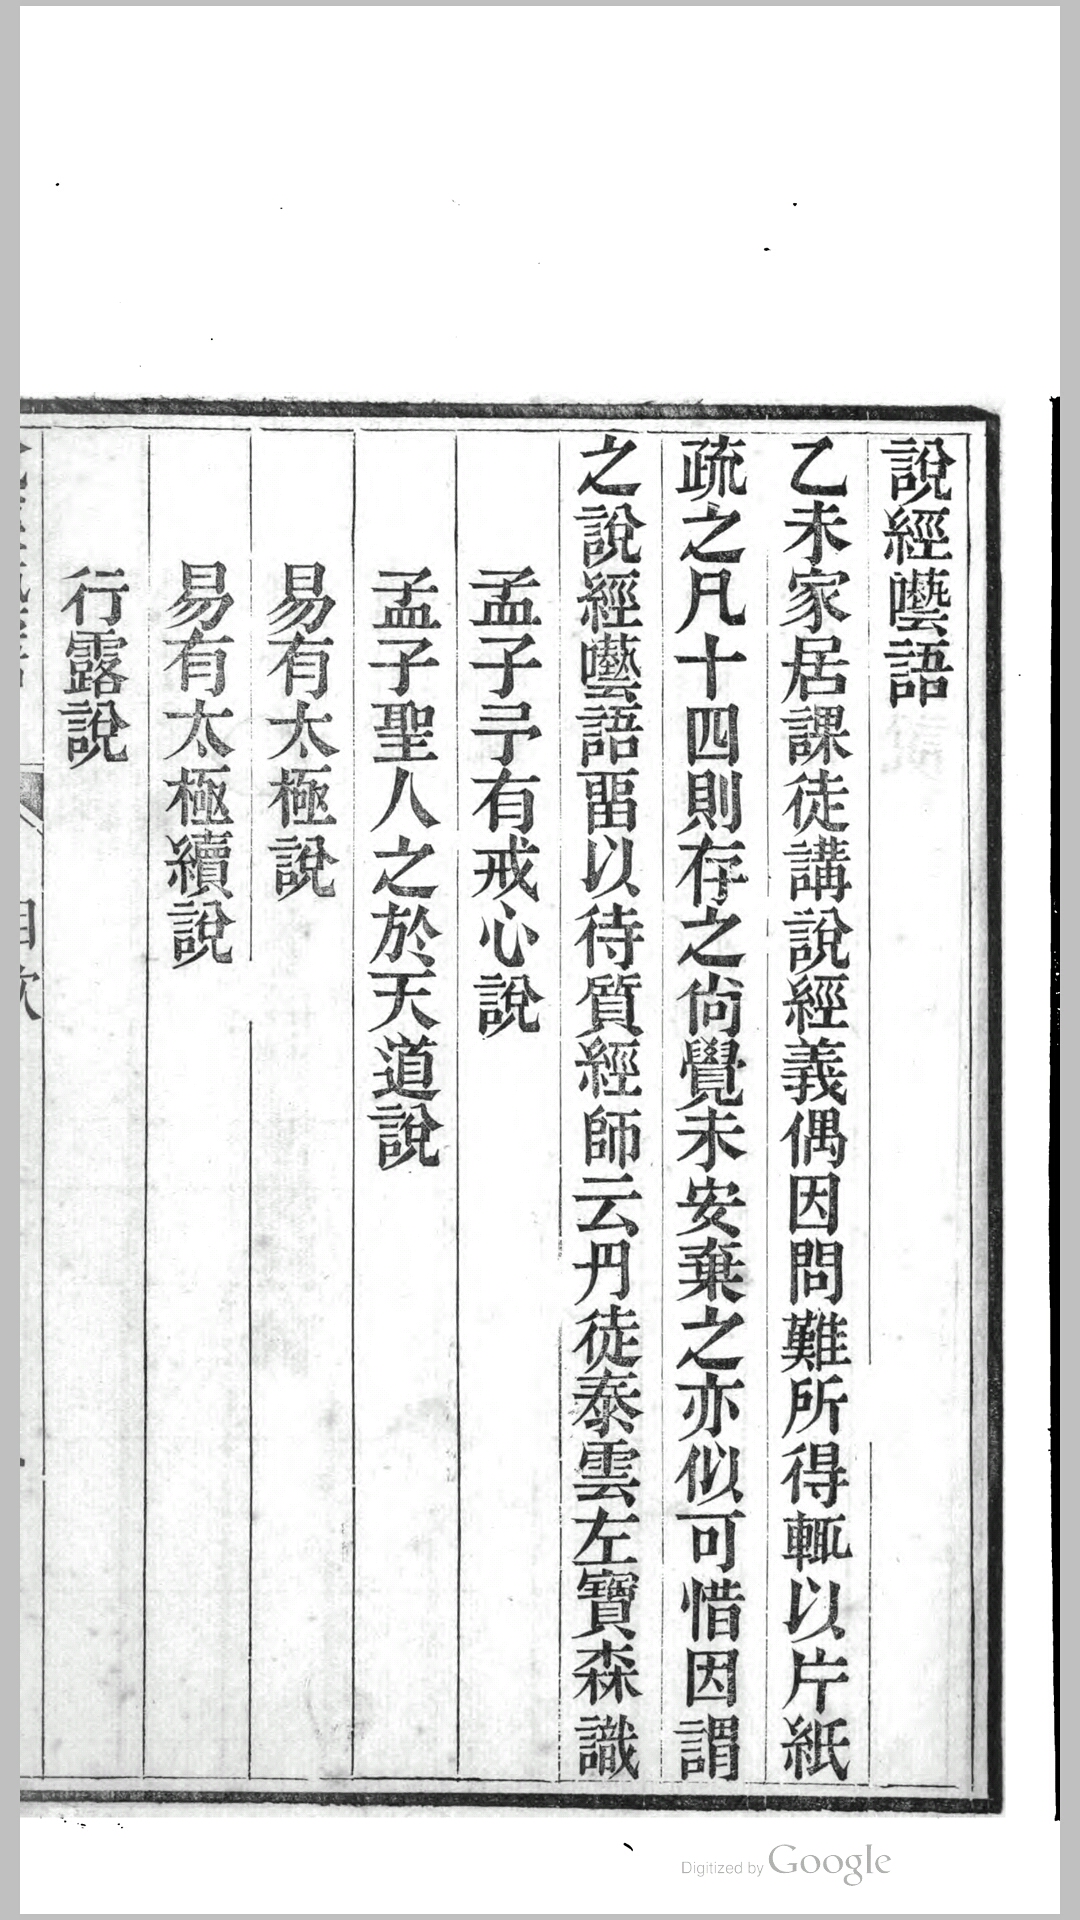 說經囈語
乙未家居課徒講說經義偶因問難所得輒以片紙
疏之凡十四則存之尙覺未安棄之亦似可惜因謂
之說經囈語畱以待質經師云丹徒泰雲左寶森識
孟子予有戒心說
孟子聖人之於天道說
易有太極說
易有太極續說
行露說
Digitized by Google